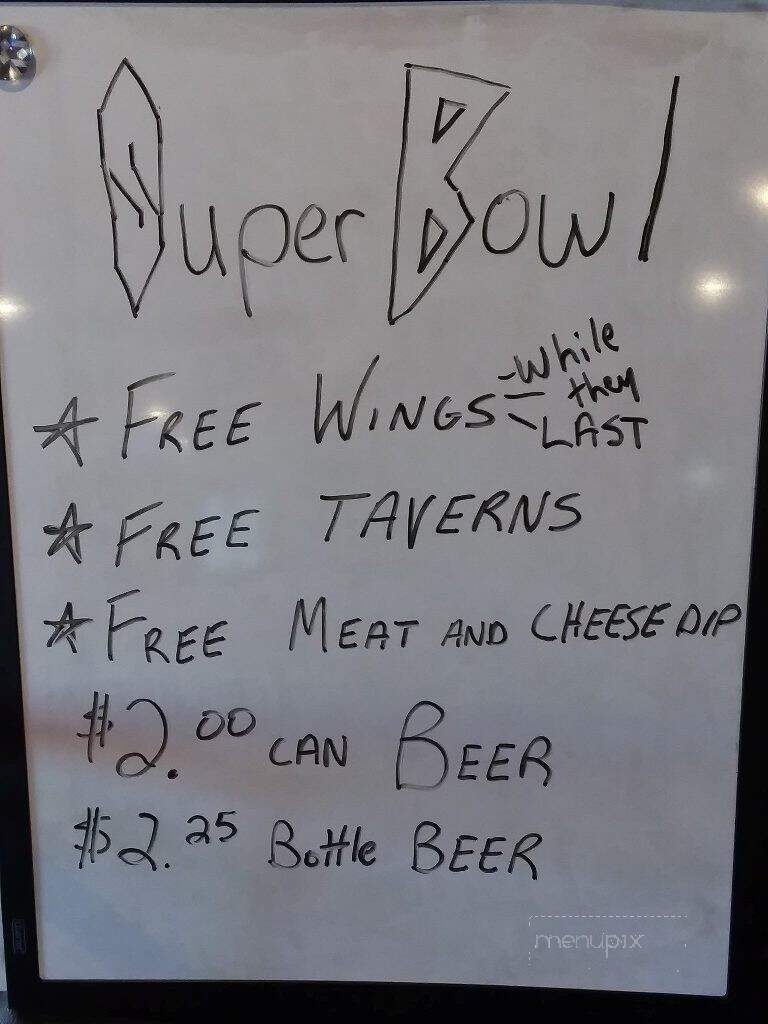 Super Bowl
☆ FREE WINGS - while they LAST
☆ FREE TAVERNS
☆ FREE MEAT AND CHEESE DIP
$2.00 CAN BEER
$2.25 Bottle BEER
menupix